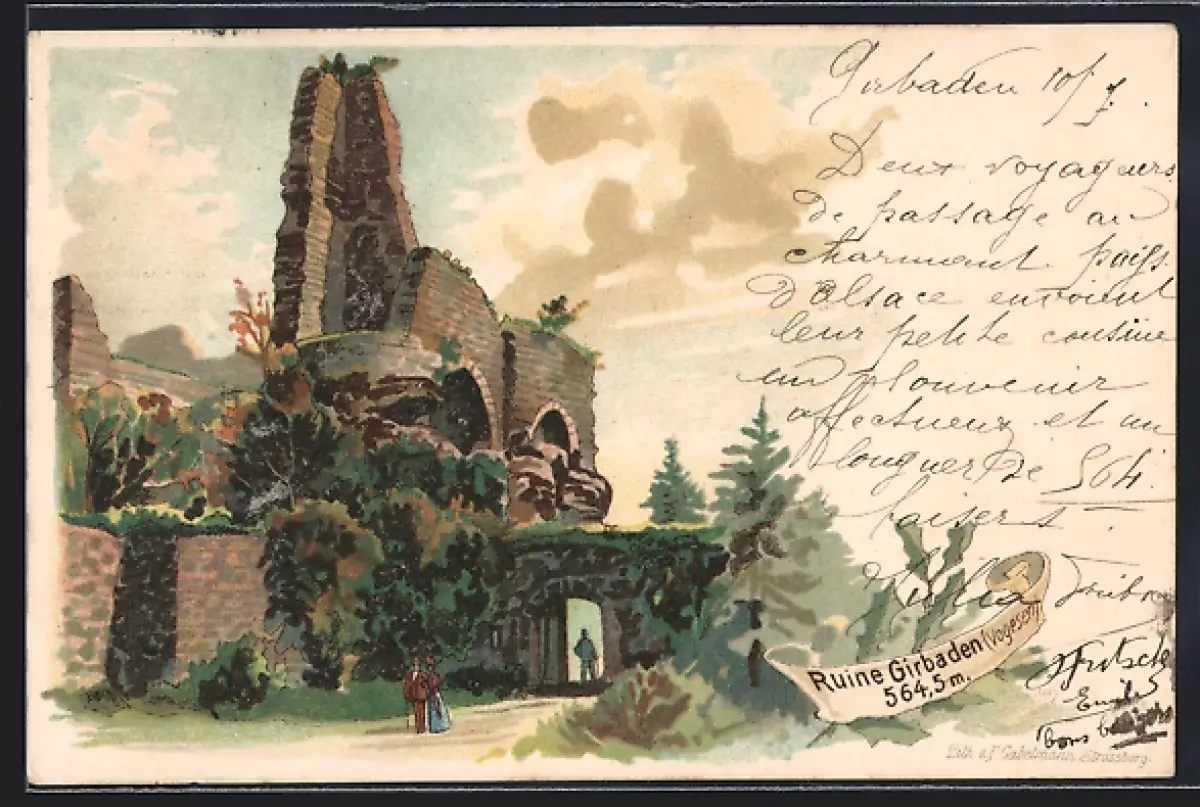 Girbaden 10/7.
Deux voyageurs
de passage au
charmant pays
d'Alsace envoient
leur petite cousine
un souvenir
affectueux et un
bouquet de 564.
baisers
Julia
Fritsch
Emile
bons baisers
Ruine Girbaden (Vogesen)
564,5 m.
Lith. v. J. Gabelmann, Strassburg.